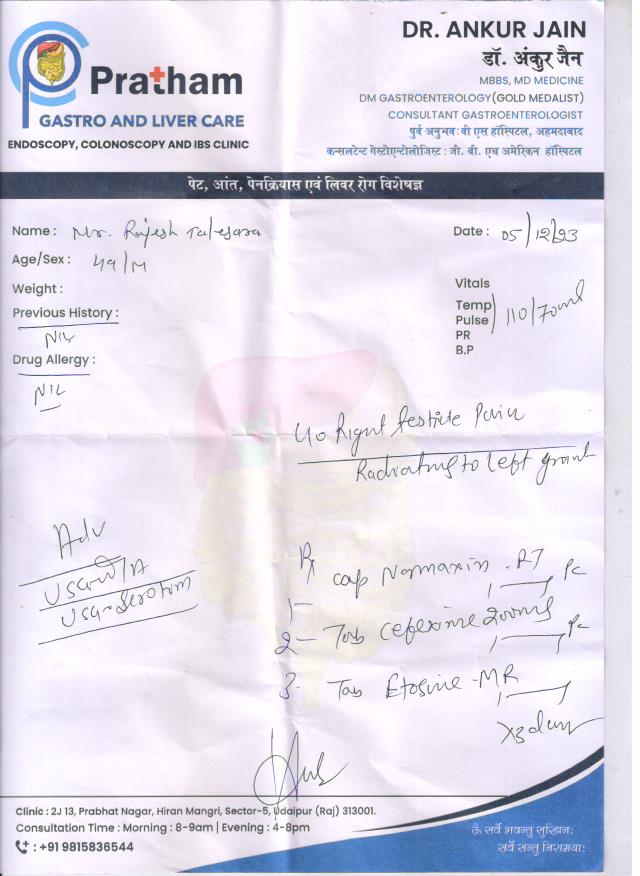 DR. ANKUR JAIN
डॉ. अंकुर जैन
MBBS, MD MEDICINE
DM GASTROENTEROLOGY (GOLD MEDALIST)
CONSULTANT GASTROENTEROLOGIST
पुर्व अनुभव : वी एस हॉस्पिटल, अहमदाबाद
कन्सलटेन्ट गेस्टोएन्टोलोजिस्ट : जी. बी. एच अमेरिकन हॉस्पिटल
Pratham
GASTRO AND LIVER CARE
ENDOSCOPY, COLONOSCOPY AND IBS CLINIC
पेट, आंत, पेनक्रियास एवं लिवर रोग विशेषज्ञ
Name : Mr. Rajesh Talesara
Date : 05/12/23
Age/Sex : 49/M
Weight :
Previous History :
NIL
Drug Allergy :
NIL
Vitals
Temp
Pulse 110/70
PR
B.P
c/o Right Pain
Radiating to left
Adv
USG W/A
USG-Scrotum
Rx
1- cap Normaxin-RT 1 — Pc
2- Tab cefexime 200mg 1 — Pc
3. Tab -MR 1 —
x3 days
Clinic : 2J 13, Prabhat Nagar, Hiran Mangri, Sector-5, Udaipur (Raj) 313001.
Consultation Time : Morning : 8-9am | Evening : 4-8pm
: +91 9815836544
ऊँ सर्वे भवन्तु सुखिनः
सर्वे सन्तु निरामयाः